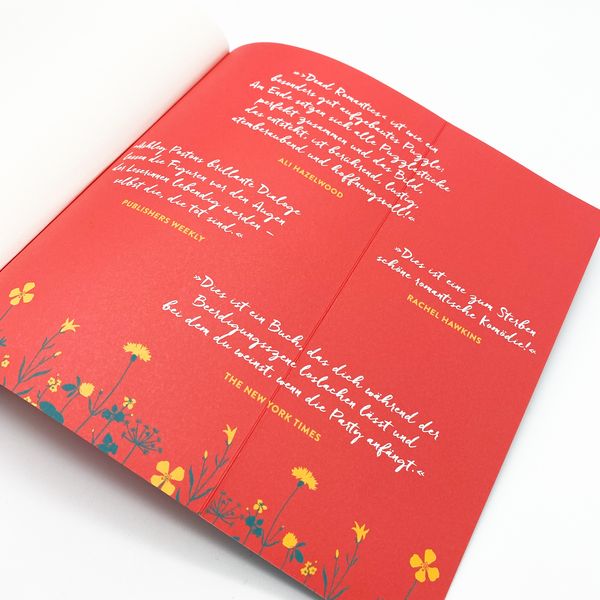 »›Dead Romantics‹ ist wie ein
besonders gut aufgebautes Puzzle.
Am Ende setzen sich alle Puzzlestücke
perfekt zusammen und das Bild,
das entsteht, ist berührend, lustig,
atemberaubend und hoffnungsvoll!«
ALI HAZELWOOD
»Ashley Postons brillante Dialoge
lassen die Figuren vor den Augen
der Leserinnen lebendig werden –
selbst die, die tot sind.«
PUBLISHERS WEEKLY
»Dies ist eine zum Sterben
schöne romantische Komödie!«
RACHEL HAWKINS
»Dies ist ein Buch, das dich während der
Beerdigungsszene loslachen lässt und
bei dem du weinst, wenn die Party anfängt.«
THE NEW YORK TIMES